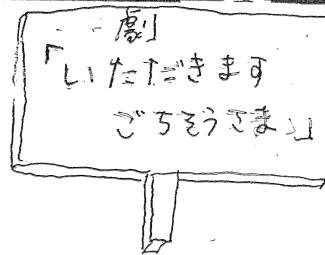 劇
「いただきます
ごちそうさま」